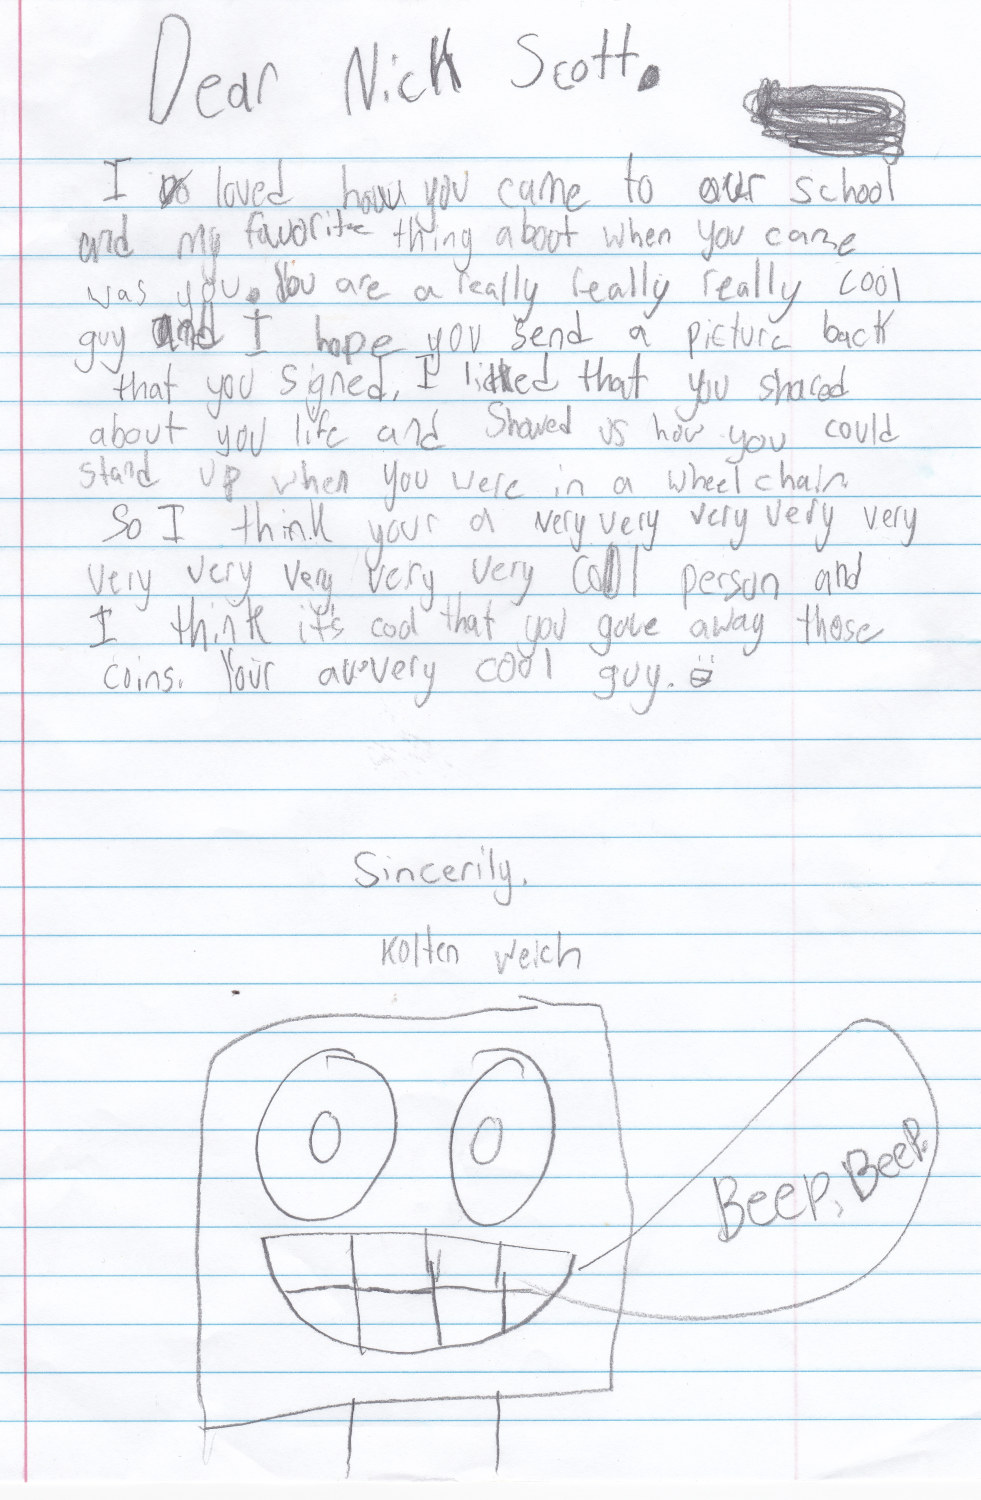 Dear Nick Scott.
I loved how you came to our school
and my favorite thing about when you came
was you. You are a really really really cool
guy and I hope you send a picture back
that you signed. I liked that you shared
about you life and Showed us how you could
stand up when you were in a wheel chair.
So I think your a very very very very very
very very very very very cool person and
I think it's cool that you gave away those
coins. Your a very cool guy.
Sincerily,
Kolten Welch
Beep, Beep.